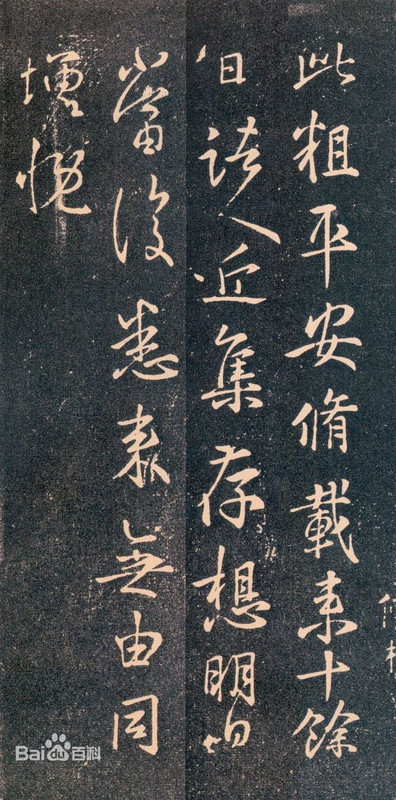 此粗平安脩載来十餘
日諸人近集存想明日
當復悉来無由同
增慨
Bai百科